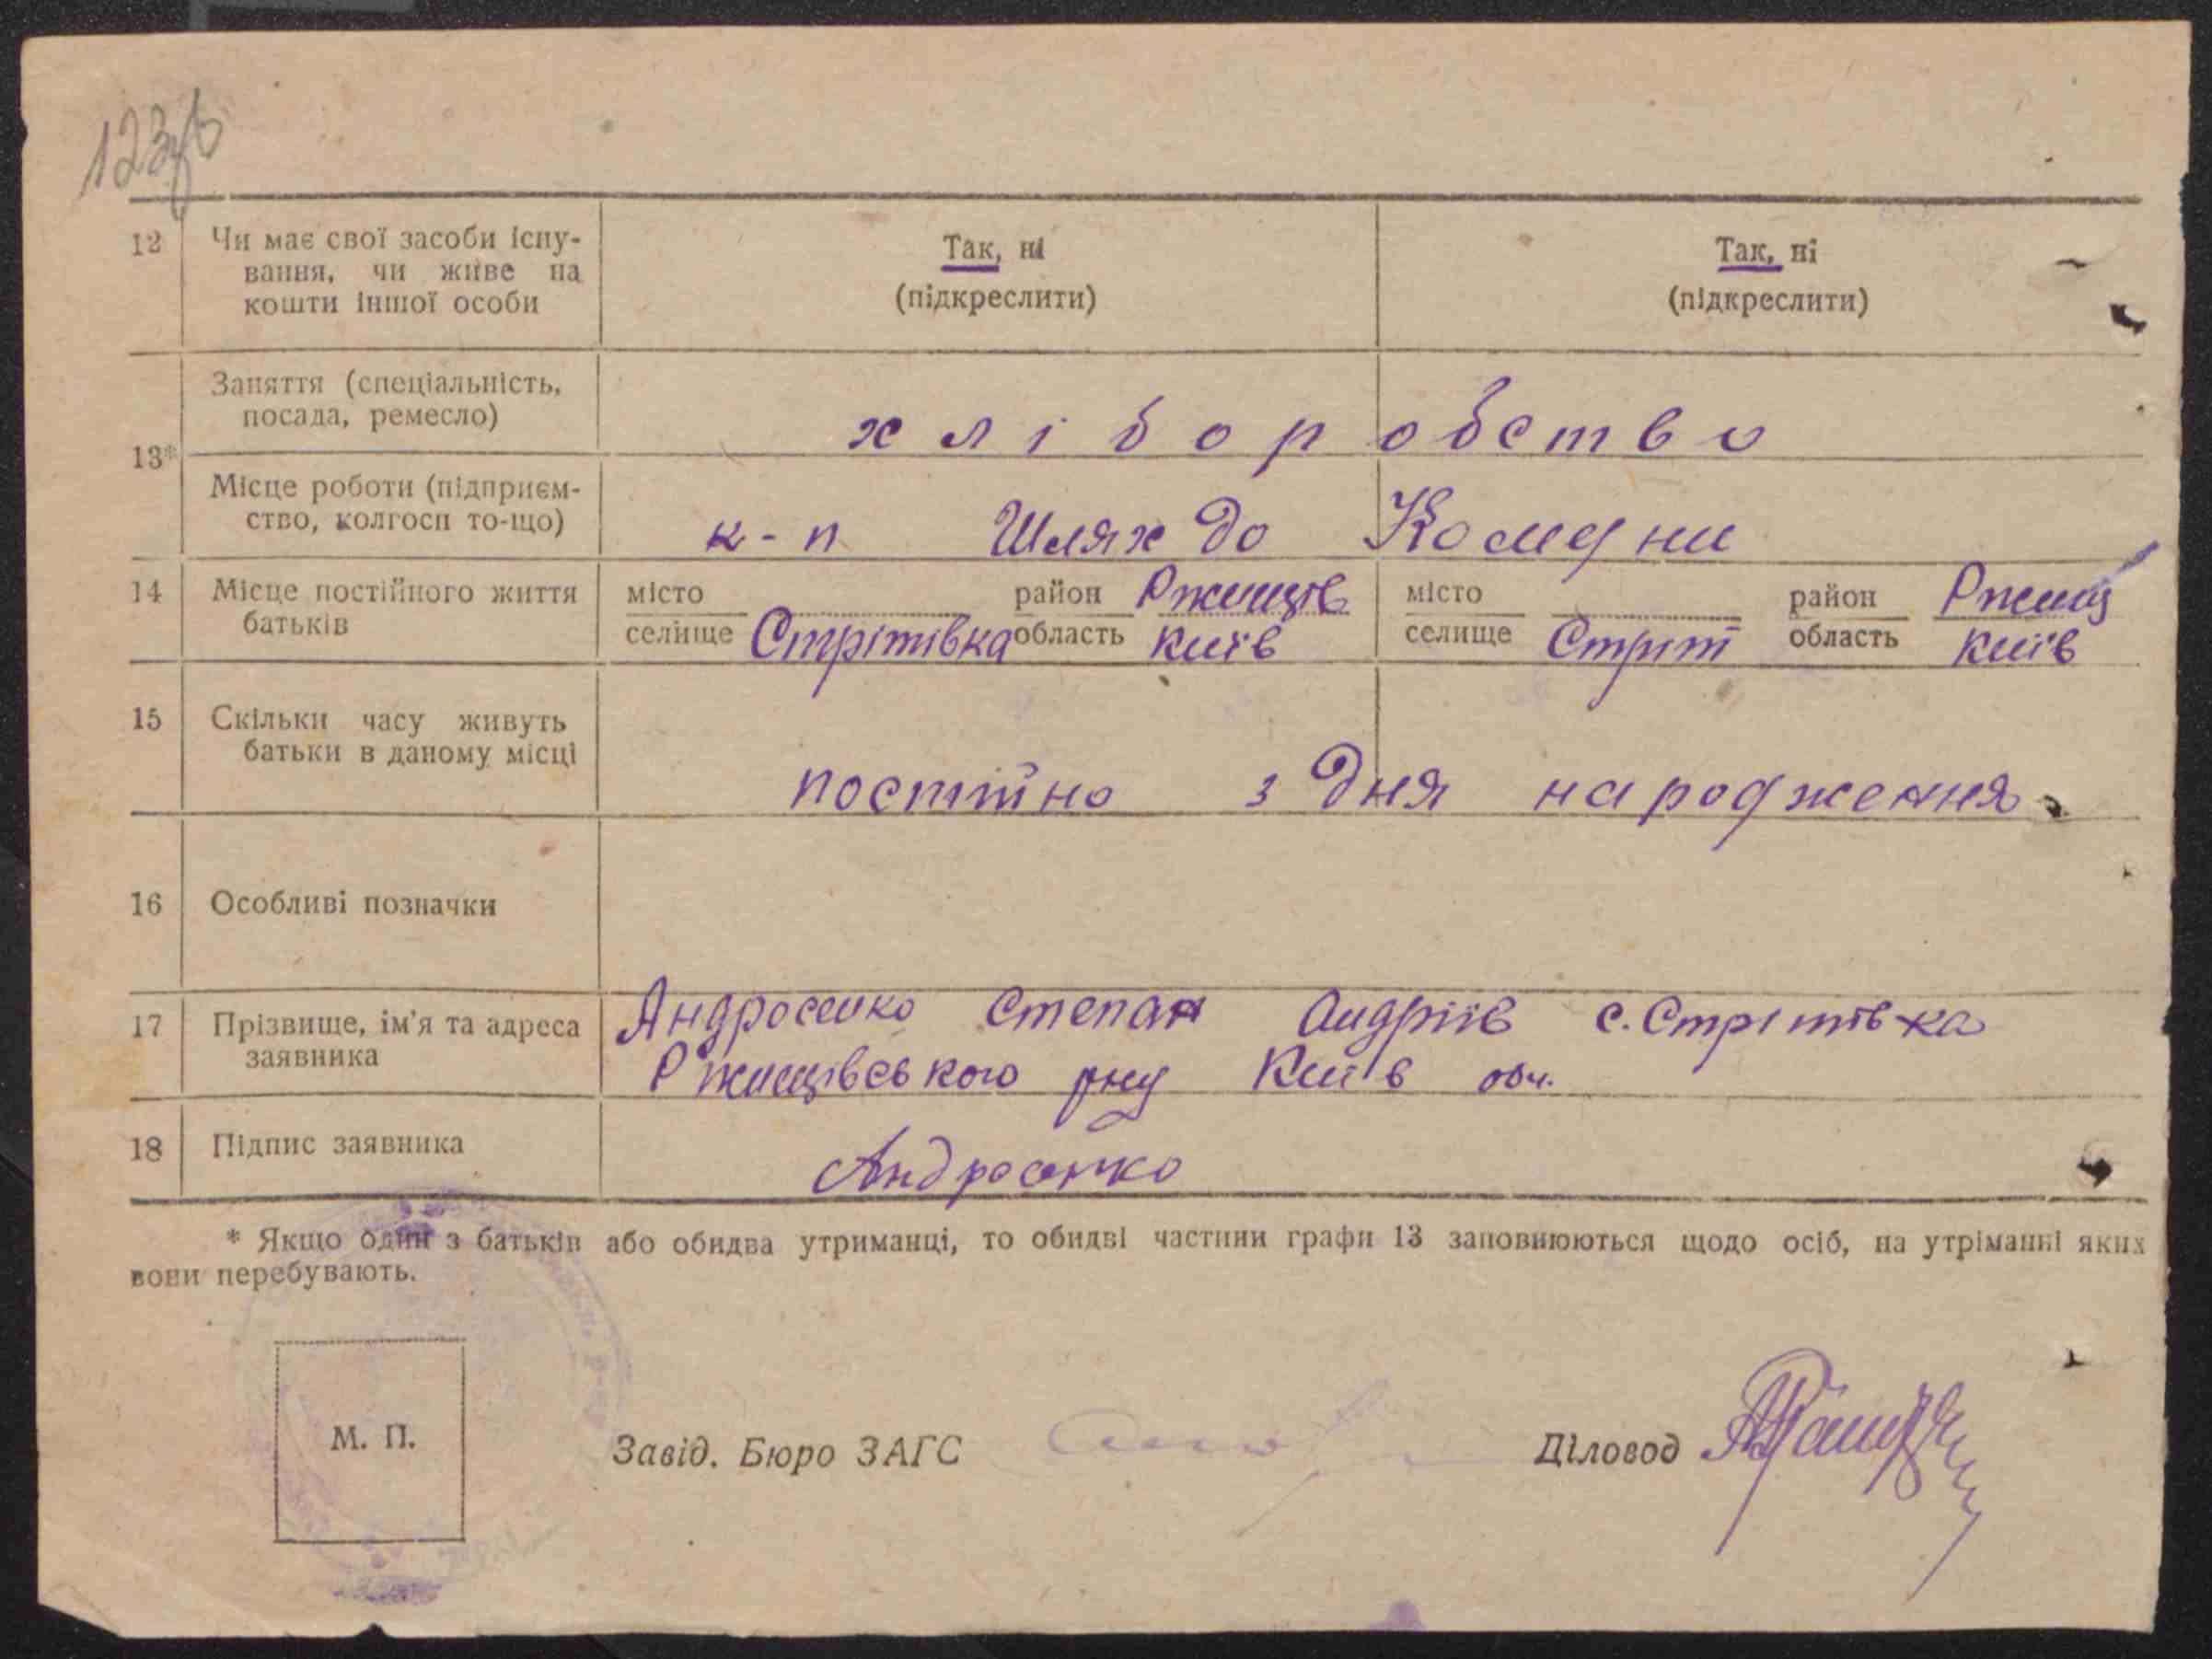 123
12 Чи має свої засоби існу-
вання, чи живе на
кошти іншої особи
Так, ні
(підкреслити)
Так, ні
(підкреслити)
13*
Заняття (спеціальність,
посада, ремесло)
хліборобство
Місце роботи (підприєм-
ство, колгосп то-що)
к-п Шлях до Комуни
14 Місце постійного життя
батьків
місто район Ржищів
селище Стрітівка область Київ
місто район Ржищ
селище Стріт область Київ
15 Скільки часу живуть
батьки в даному місці
постійно з дня народження
16 Особливі позначки
17 Прізвище, ім'я та адреса
заявника
Андросенко Степан Андріїв с. Стрітівка
Ржищівського рну Київ обл.
18 Підпис заявника
Андросенко
* Якщо один з батьків або обидва утриманці, то обидві частини графи 13 заповнюються щодо осіб, на утріманні яких
вони перебувають.
М. П.
Завід. Бюро ЗАГС
Діловод